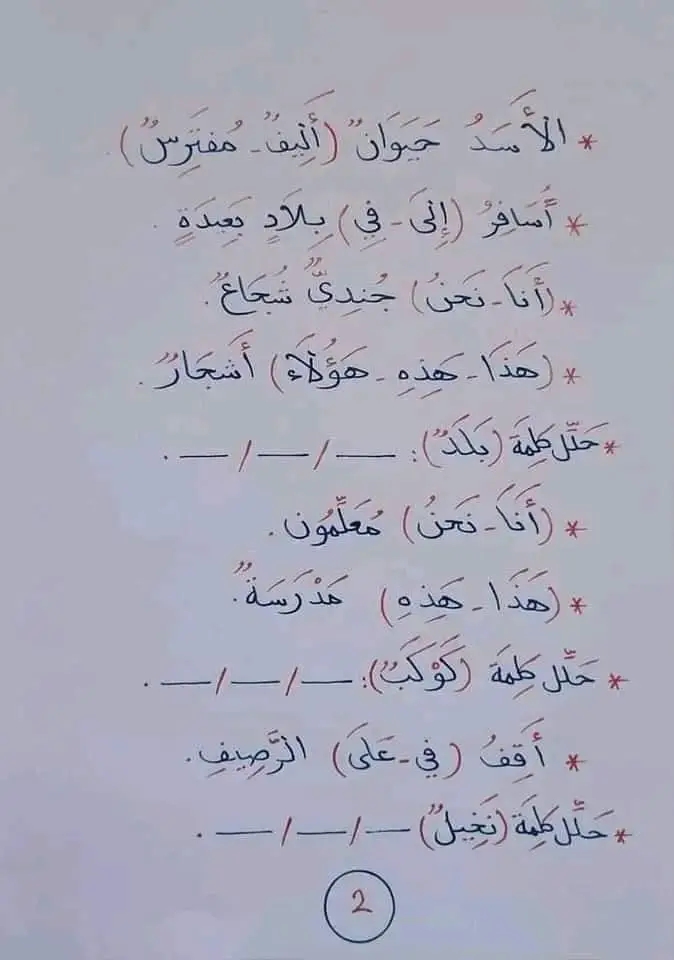 * الأَسَدُ حَيَوَانٌ (أَلِيفٌ - مُفتَرِسٌ).
* أُسَافِرُ (إِلَى - فِي) بِلَادٍ بَعِيدَةٍ.
* (أَنَا - نَحنُ) جُندِيٌّ شُجَاعٌ.
* (هَذَا - هَذِهِ - هَؤُلَاءِ) أَشجَارٌ.
* حَلِّل كَلِمَة (بَلَدٌ): ـــ / ـــ / ـــ .
* (أَنَا - نَحنُ) مُعَلِّمُون.
* (هَذَا - هَذِهِ) مَدْرَسَةٌ.
* حَلِّل كَلِمَة (كَوْكَبٌ): ـــ / ـــ / ـــ .
* أَقِفُ (فِي - عَلَى) الرَّصِيفِ.
* حَلِّل كَلِمَة (نَخِيلٌ) ـــ / ـــ / ـــ .
2